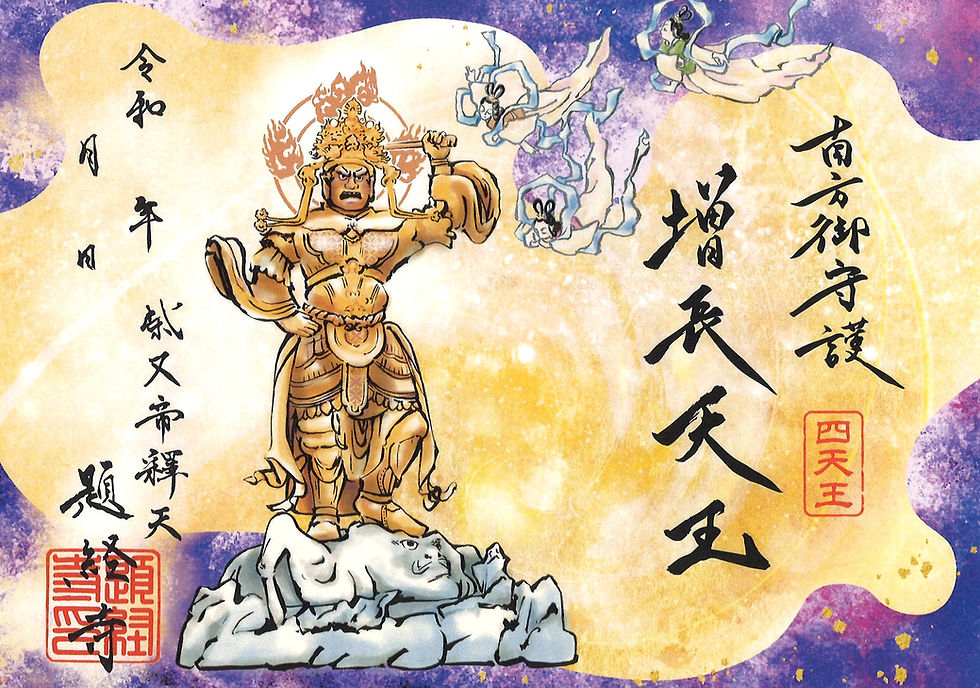 南方御守護
四天王
増長天王
令和 年
月 日
柴又帝釋天
題経寺
題経寺印